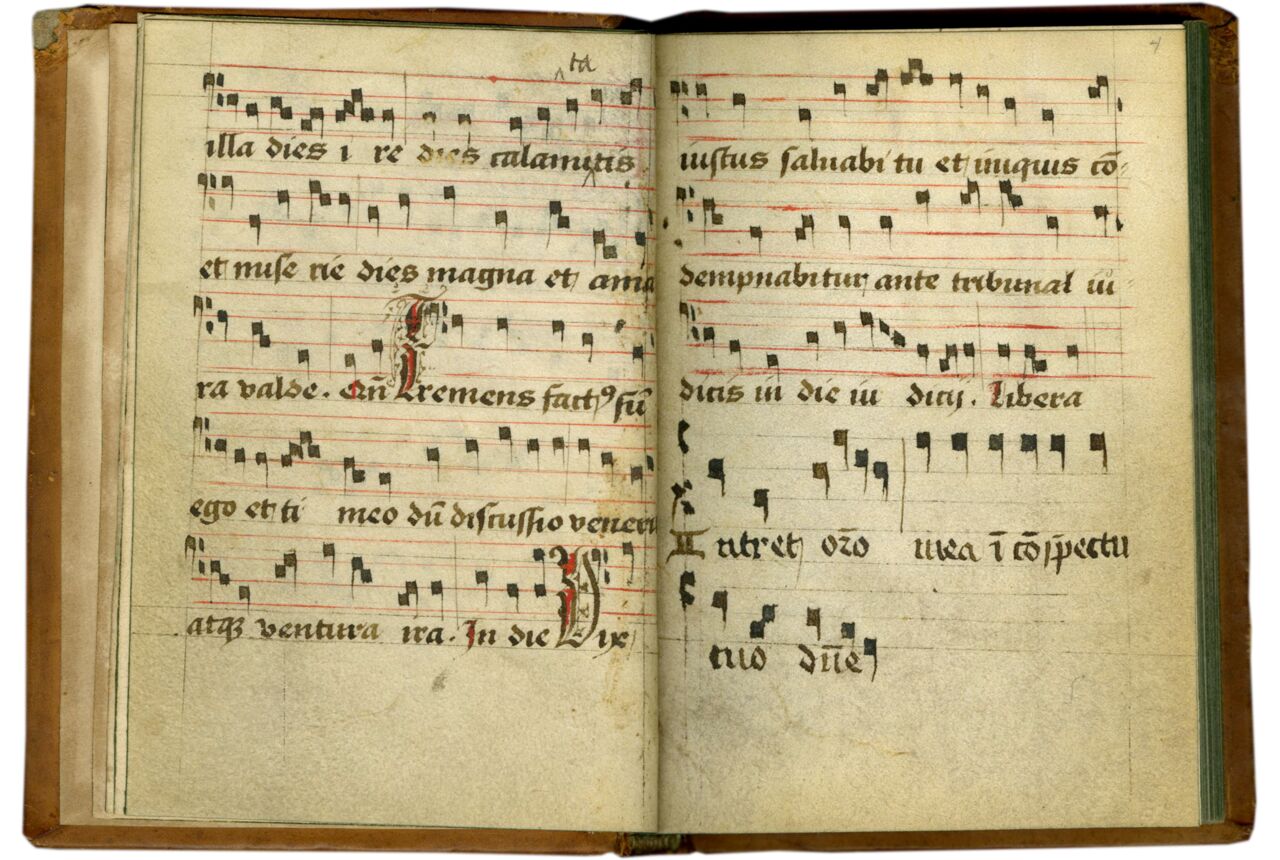 ta
illa dies i re dies calamitis
et mise rie dies magna et ama
ra valde. Qm̄ Tremens fact⁹ sū
ego et ti meo dū discussio veneri
atqꝫ ventura ira. In die Vix
4
iustus saluabi tu et iniquus cō-
dempnabitur ante tribunal iu-
dicis in die iu dicij. Libera
Intret or̄o mea ī cōspectu
tuo dn̄e